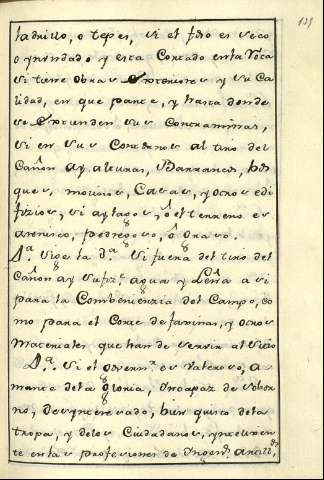 139
ladrillo, o tepes, si el foso es seco
o ynundado y esta Cortado en la Roca
si tiene obras Exteriores y su Ca
lidad, en que parte, y hasta donde
se Extienden sus Contraminas,
si en sus Contornos al tiro del
Cañon ay alturas, Barrancas, bos
ques, molinos, Casas, y otros edi
fizios, si ay lagos, ó el terreno es
arenisco, pedregoso, ó Gravo.
si fuera del tiro del
Cañon ay sufiz.te agua y Leña a si
para la Combenienzia del Campo, co
mo para el Corte de faxinas, y otros
Materiales que han de servir al Sitio
si el Governr. es Valeroso, a
mante de la Gloria, Yncapaz de sobor
no, Desynteresado, bien quisto de la
tropa, y delos Ciudadanos,
te en las profesiones de Yngenr.